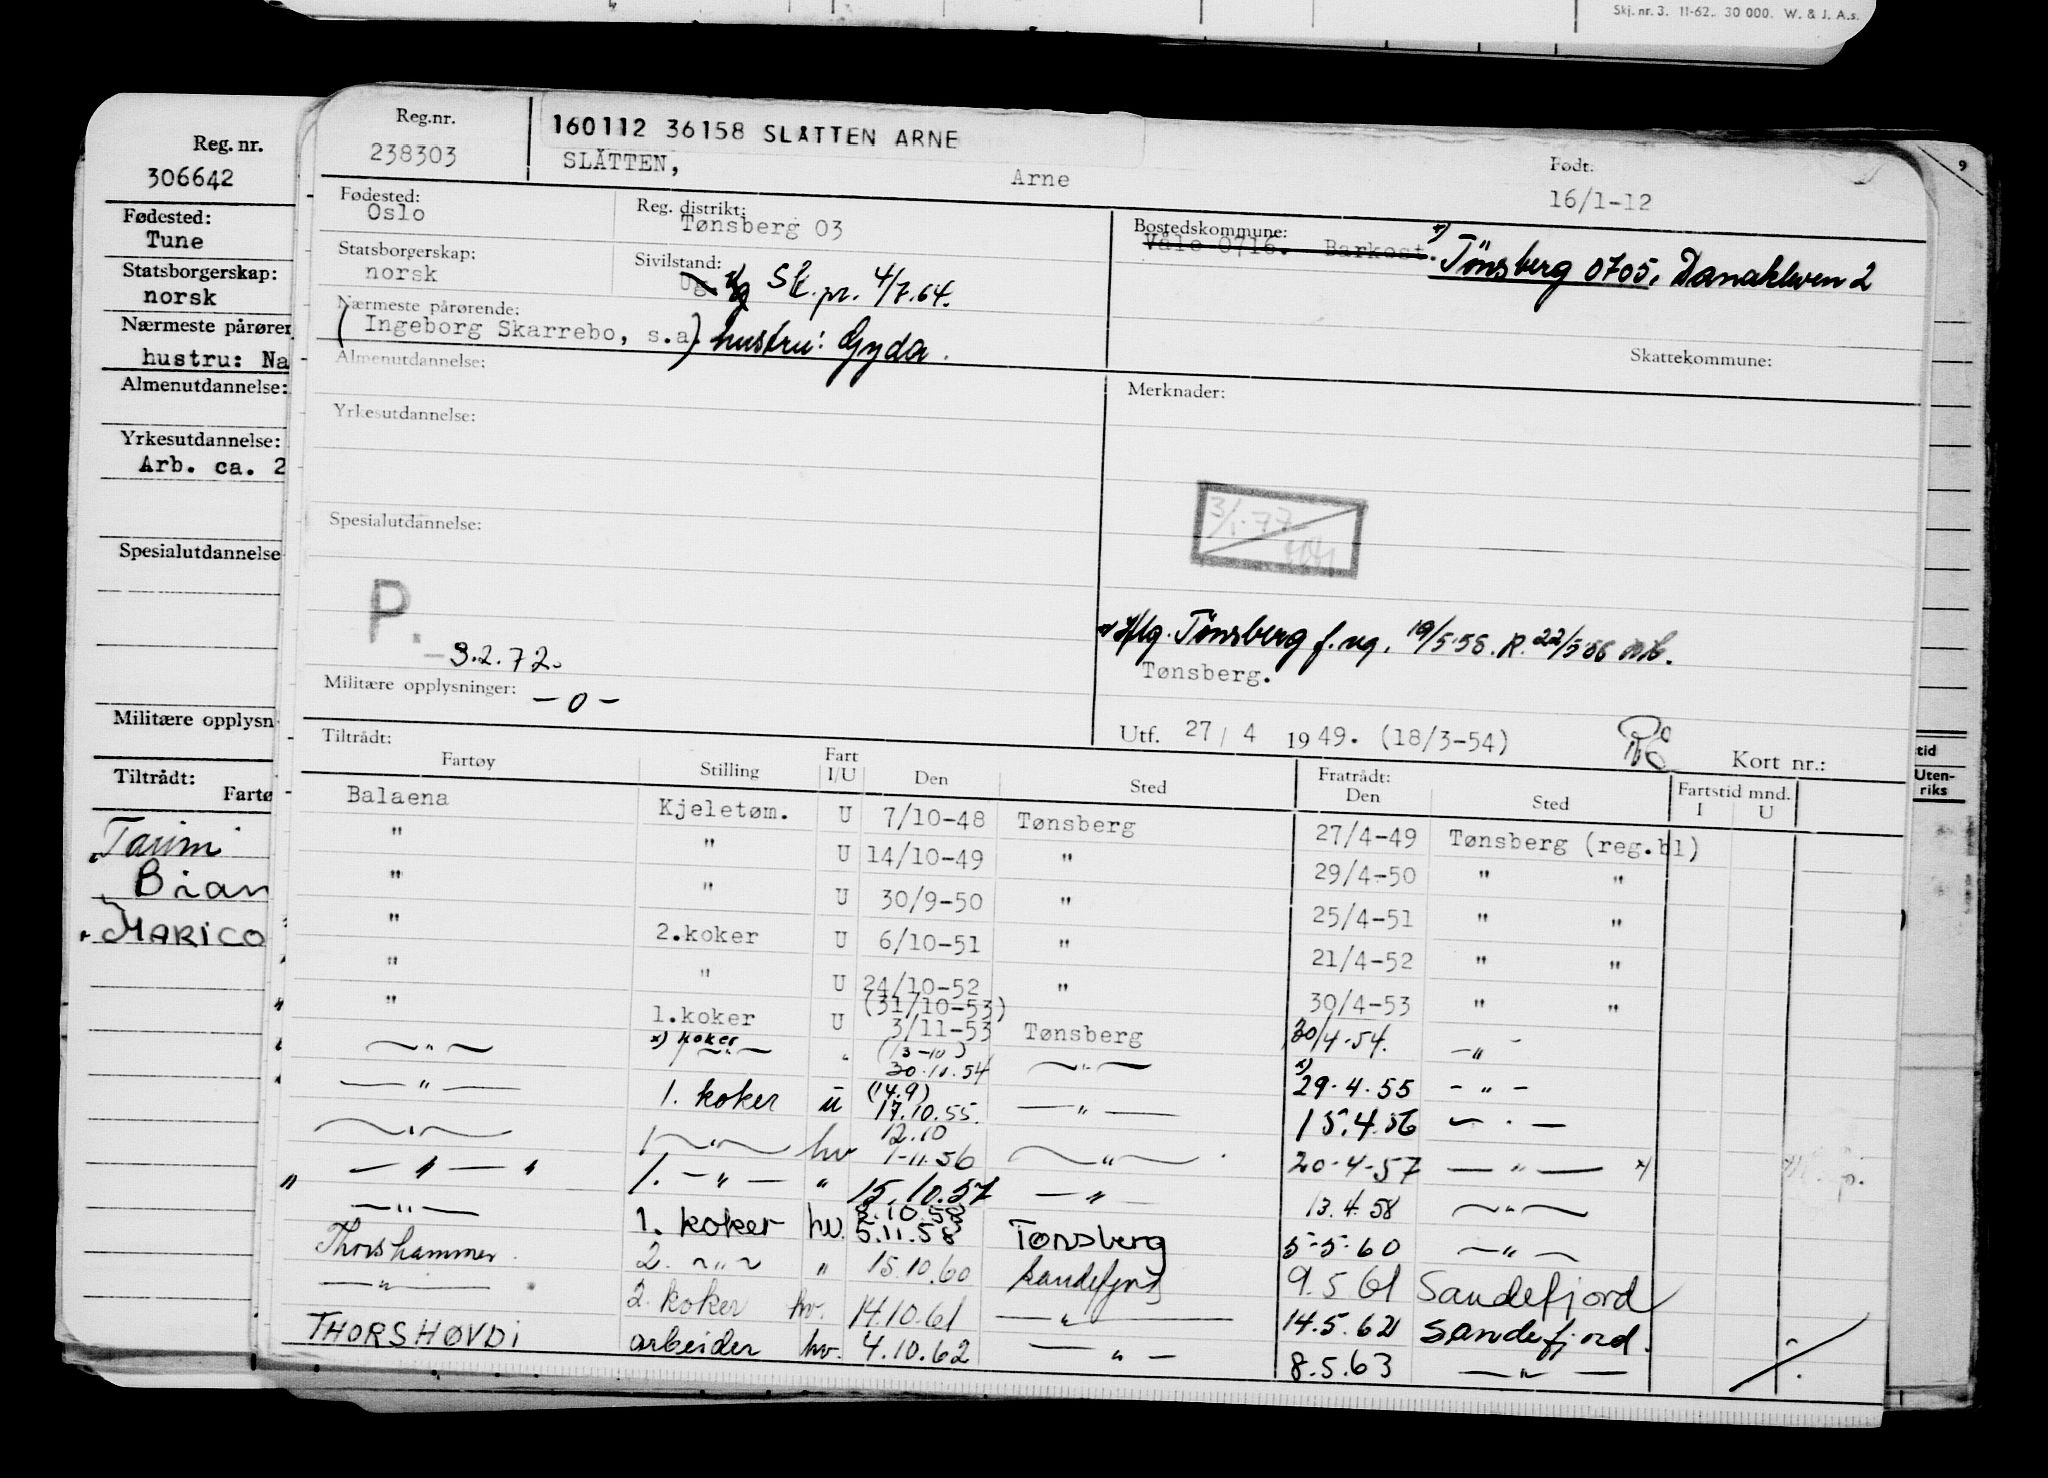 Skj. nr. 3. 11-62. 30 000. W. & J. A.s.
Reg. nr.
306642
Fødested:
Tune
Statsborgerskap:
norsk
Nærmeste pårører
hustru: Na
Almenutdannelse:
Yrkesutdannelse:
Arb. ca. 2
Spesialutdannelse
Militære opplysn
Tiltrådt:
Fartø
Taimi
Bian
MARICO
Reg.nr.
238303
160112 36158 SLÅTTEN ARNE
SLÅTTEN, Arne
Født:
16/1-12
Fødested:
Oslo
Reg. distrikt:
Tønsberg 03
Bostedskommune:
Våle 0716. Barkost. x) Tönsberg 0705, Danakleven 2
Statsborgerskap:
norsk
Sivilstand:
Ug. g Sk. pr. 4/7.64.
Nærmeste pårørende:
(Ingeborg Skarrebo, s.a.) hustru: Gyda.
Skattekommune:
Almenutdannelse:
Merknader:
Yrkesutdannelse:
3/1-77
Spesialutdannelse:
P.
- 3.2.72.
x) Tönsberg f. ug. 19/5.58. R. 22/5
Tønsberg.
Militære opplysninger: - 0 -
Utf. 27 / 4 1949. (18/3-54)
Kort nr.:
Tiltrådt:
Fartøy Stilling Fart I/U Den Sted Fratrådt: Den Sted Fartstid mnd. I U
Balaena Kjeletøm. U 7/10-48 Tønsberg 27/4-49 Tønsberg (reg.bl)
" " U 14/10-49 " 29/4-50 " "
" " U 30/9-50 " 25/4-51 " "
" 2.koker U 6/10-51 " 21/4-52 " "
" " U 24/10-52 " 30/4-53 " "
(31/10-53)
" 1.koker U 3/11-53 Tønsberg 30/4-54. -"-
x) koker (13-10)
-"- -"- " 30.10.54 -"- x) 29.4.55 -"-
(14.9)
-"- 1. koker u 17.10.55. -"- 15.4.56 -"-
12.10
-"- 1 -"- hv 1-11.56 -"- 20-4-57 -"- x)
-"- 1. -"- " 15.10.57 -"- 13.4.58 -"-
2.10.58
-"- 1. koker hv. 5.11.58 Tønsberg 5-5-60 -"-
Thorshammer 2. -"- " 15.10.60 Sandefjord 9.5 61 Sandefjord
-"- 2. koker hv. 14.10.61 -"- 14.5.62 Sandefjord.
THORSHØVDI arbeider hv. 4.10.62 -"- 8.5.63 -"-
tid
Uten-
riks
9